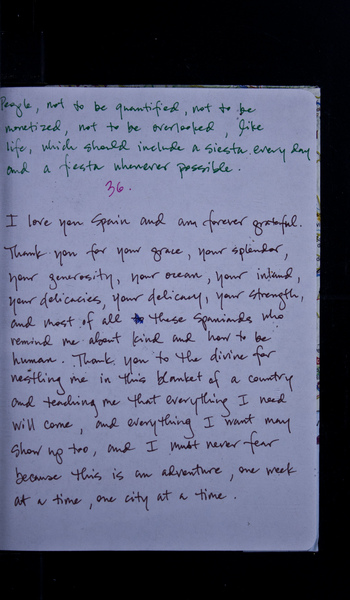 People, not to be quantified, not to be
monetized, not to be overlooked, like
life, which should include a siesta every day
and a fiesta whenever possible.
36.
I love you Spain and am forever grateful.
Thank you for your grace, your splendor,
your generosity, your ocean, your inland,
your delicacies, your delicacy, your strength,
and most of all these Spaniards who
remind me about kind and how to be
human. Thank you to the divine for
nestling me in this blanket of a country
and teaching me that everything I need
will come, and everything I want may
show up too, and I must never fear
because this is an adventure, one week
at a time, one city at a time.